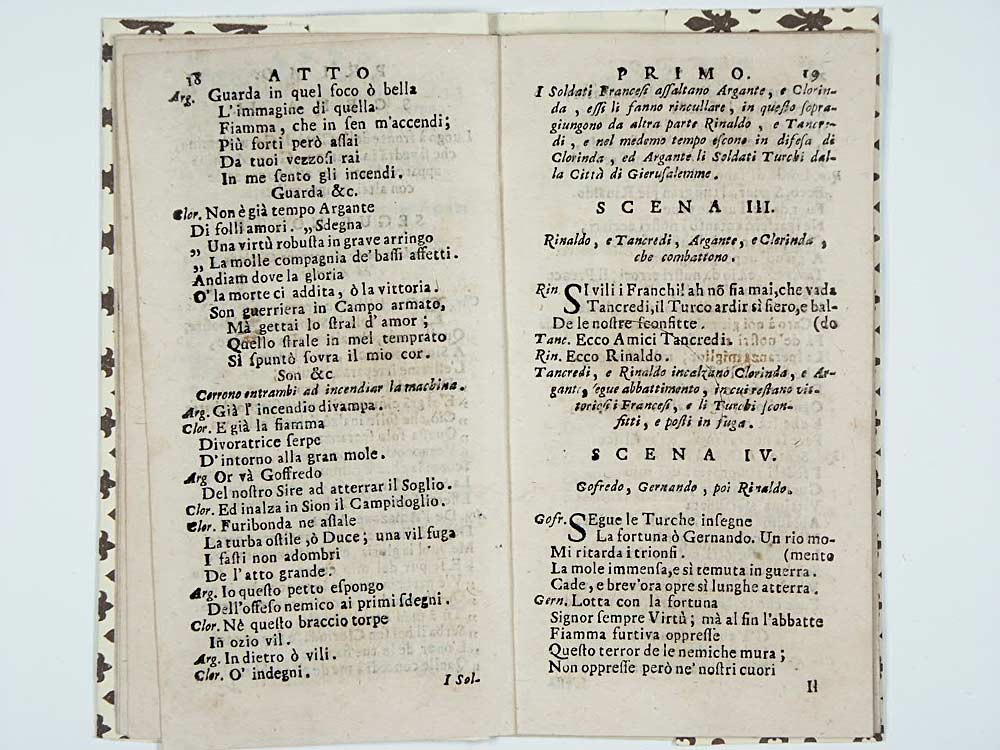 18 ATTO
Arg. Guarda in quel foco ò bella
L'immagine di quella
Fiamma, che in sen m'accendi;
Più forti però aſſai
Da tuoi vezzoſi rai
In me ſento gli incendi.
Guarda &c.
Clor. Non è già tempo Argante
Di folli amori. „ Sdegna
„ Una virtù robuſta in grave arringo
„ La molle compagnia de' baſſi affetti.
Andiam dove la gloria
O' la morte ci addita, ò la vittoria.
Son guerriera in Campo armato,
Mà gettai lo ſtral d'amor;
Quello ſtrale in mel temprato
Sì ſpuntò ſovra il mio cor.
Son &c
Corrono entrambi ad incendiar la machina.
Arg. Già l'incendio divampa.
Clor. E già la fiamma
Divoratrice ſerpe
D'intorno alla gran mole.
Arg Or và Goffredo
Del noſtro Sire ad atterrar il Soglio.
Clor. Ed inalza in Sion il Campidoglio.
Clor. Furibonda ne aſſale
La turba oſtile, ò Duce; una vil fuga
I faſti non adombri
De l'atto grande.
Arg. Io queſto petto eſpongo
Dell'offeſo nemico ai primi ſdegni.
Clor. Nè queſto braccio torpe
In ozio vil.
Arg. In dietro ò vili.
Clor. O' indegni.
I Sol-
PRIMO. 19
I Soldati Franceſi aſſaltano Argante, e Clorin-
da, eſſi li fanno rincullare, in queſto ſopra-
giungono da altra parte Rinaldo, e Tancre-
di, e nel medemo tempo eſcono in difeſa di
Clorinda, ed Argante li Soldati Turchi dal-
la Città di Gieruſalemme.
SCENA III.
Rinaldo, e Tancredi, Argante, e Clorinda,
che combattono.
Rin SI vili i Franchi! ah nõ ſia mai, che vada
Tancredi, il Turco ardir sì fiero, e bal-
De le noſtre ſconfitte. (do
Tanc. Ecco Amici Tancredi.
Rin. Ecco Rinaldo.
Tancredi, e Rinaldo incalzano Clorinda, e Ar-
gante, ſegue abbattimento, in cui reſtano vit-
torioſi i Franceſi, e li Turchi ſcon-
fitti, e poſti in fuga.
SCENA IV.
Gofredo, Gernando, poi Rinaldo.
Gofr. SEgue le Turche inſegne
La fortuna ò Gernando. Un rio mo-
Mi ritarda i trionfi. (mento
La mole immenſa, e sì temuta in guerra.
Cade, e brev'ora opre sì lunghe atterra.
Gern. Lotta con la fortuna
Signor ſempre Virtù; mà al fin l'abbatte
Fiamma furtiva oppreſſe
Queſto terror de le nemiche mura;
Non oppreſſe però ne' noſtri cuori
Il